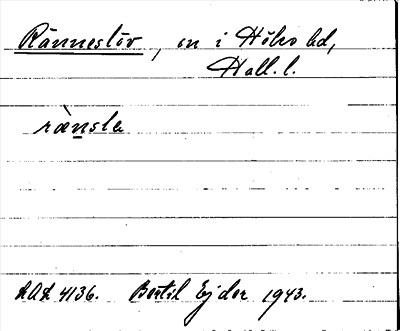 Ränneslöv, sn i Höks hd,
Hall. l.
rænsle
LAL 4136. Bertil Ejder 1943.